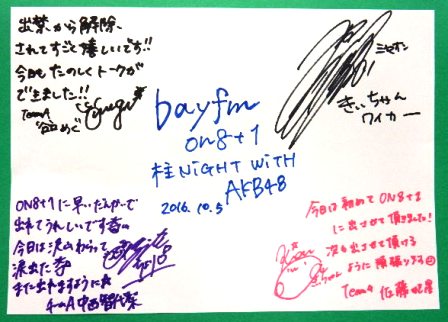 出禁から解除、
されてすごく嬉しいです!!
今日もたのしくトークが
できました!!
TeamA
"谷口めぐ"
ミセオン
きぃちゃん
ワイカー
bayfm
ON8+1
柱NIGHT WITH
AKB48
2016.10.5
ON8+1に早いたんかいで
出れてうれしいです
今日は沢山わらって
涙出た
また出れますように
チームA 中西智代梨
今日は初めてON8+1
に出させて頂きました!
次も出させて頂ける
ように頑張ります
Team4 佐藤妃星